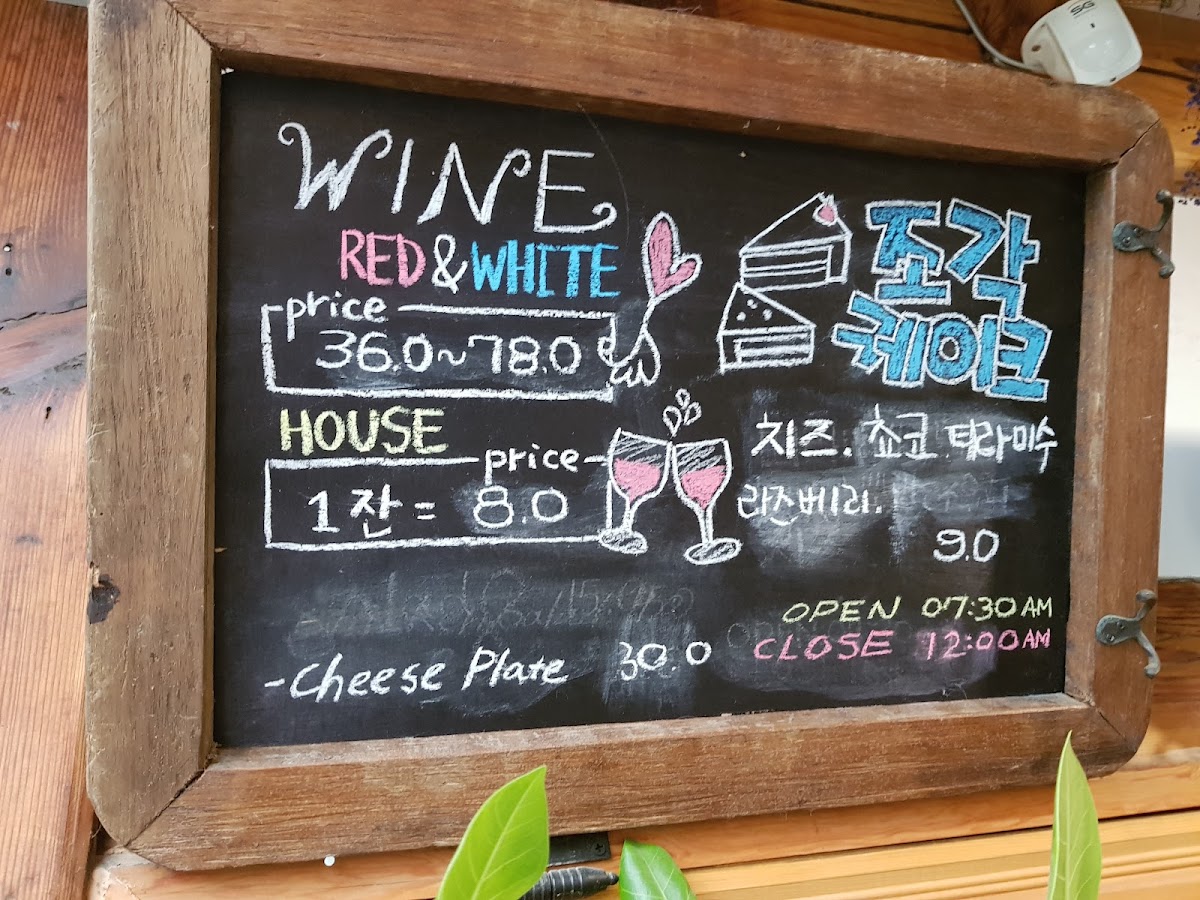 WINE
RED & WHITE
price
36.0~78.0
HOUSE
price
1잔 = 8.0
-Cheese Plate 30.0
조각
케이크
치즈. 쵸코 티라미수
라즈베리.
9.0
OPEN 07:30 AM
CLOSE 12:00 AM
SG